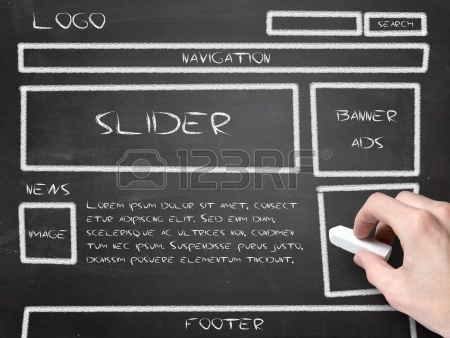 LOGO
SEARCH
NAVIGATION
SLIDER
BANNER
ADS
NEWS
IMAGE
LOREM IPSUM DOLOR SIT AMET, CONSECT
ETUER ADIPISCING ELIT. SED ENIM,
SCELERISQUE AC ULTRICES UT, VOLUTPAT
NEC IPSUM. SUSPENDISSE PURUS DIAM,
DIGNISSIM EU ELEMENTUM TINCIDUNT.
FOOTER
123RF